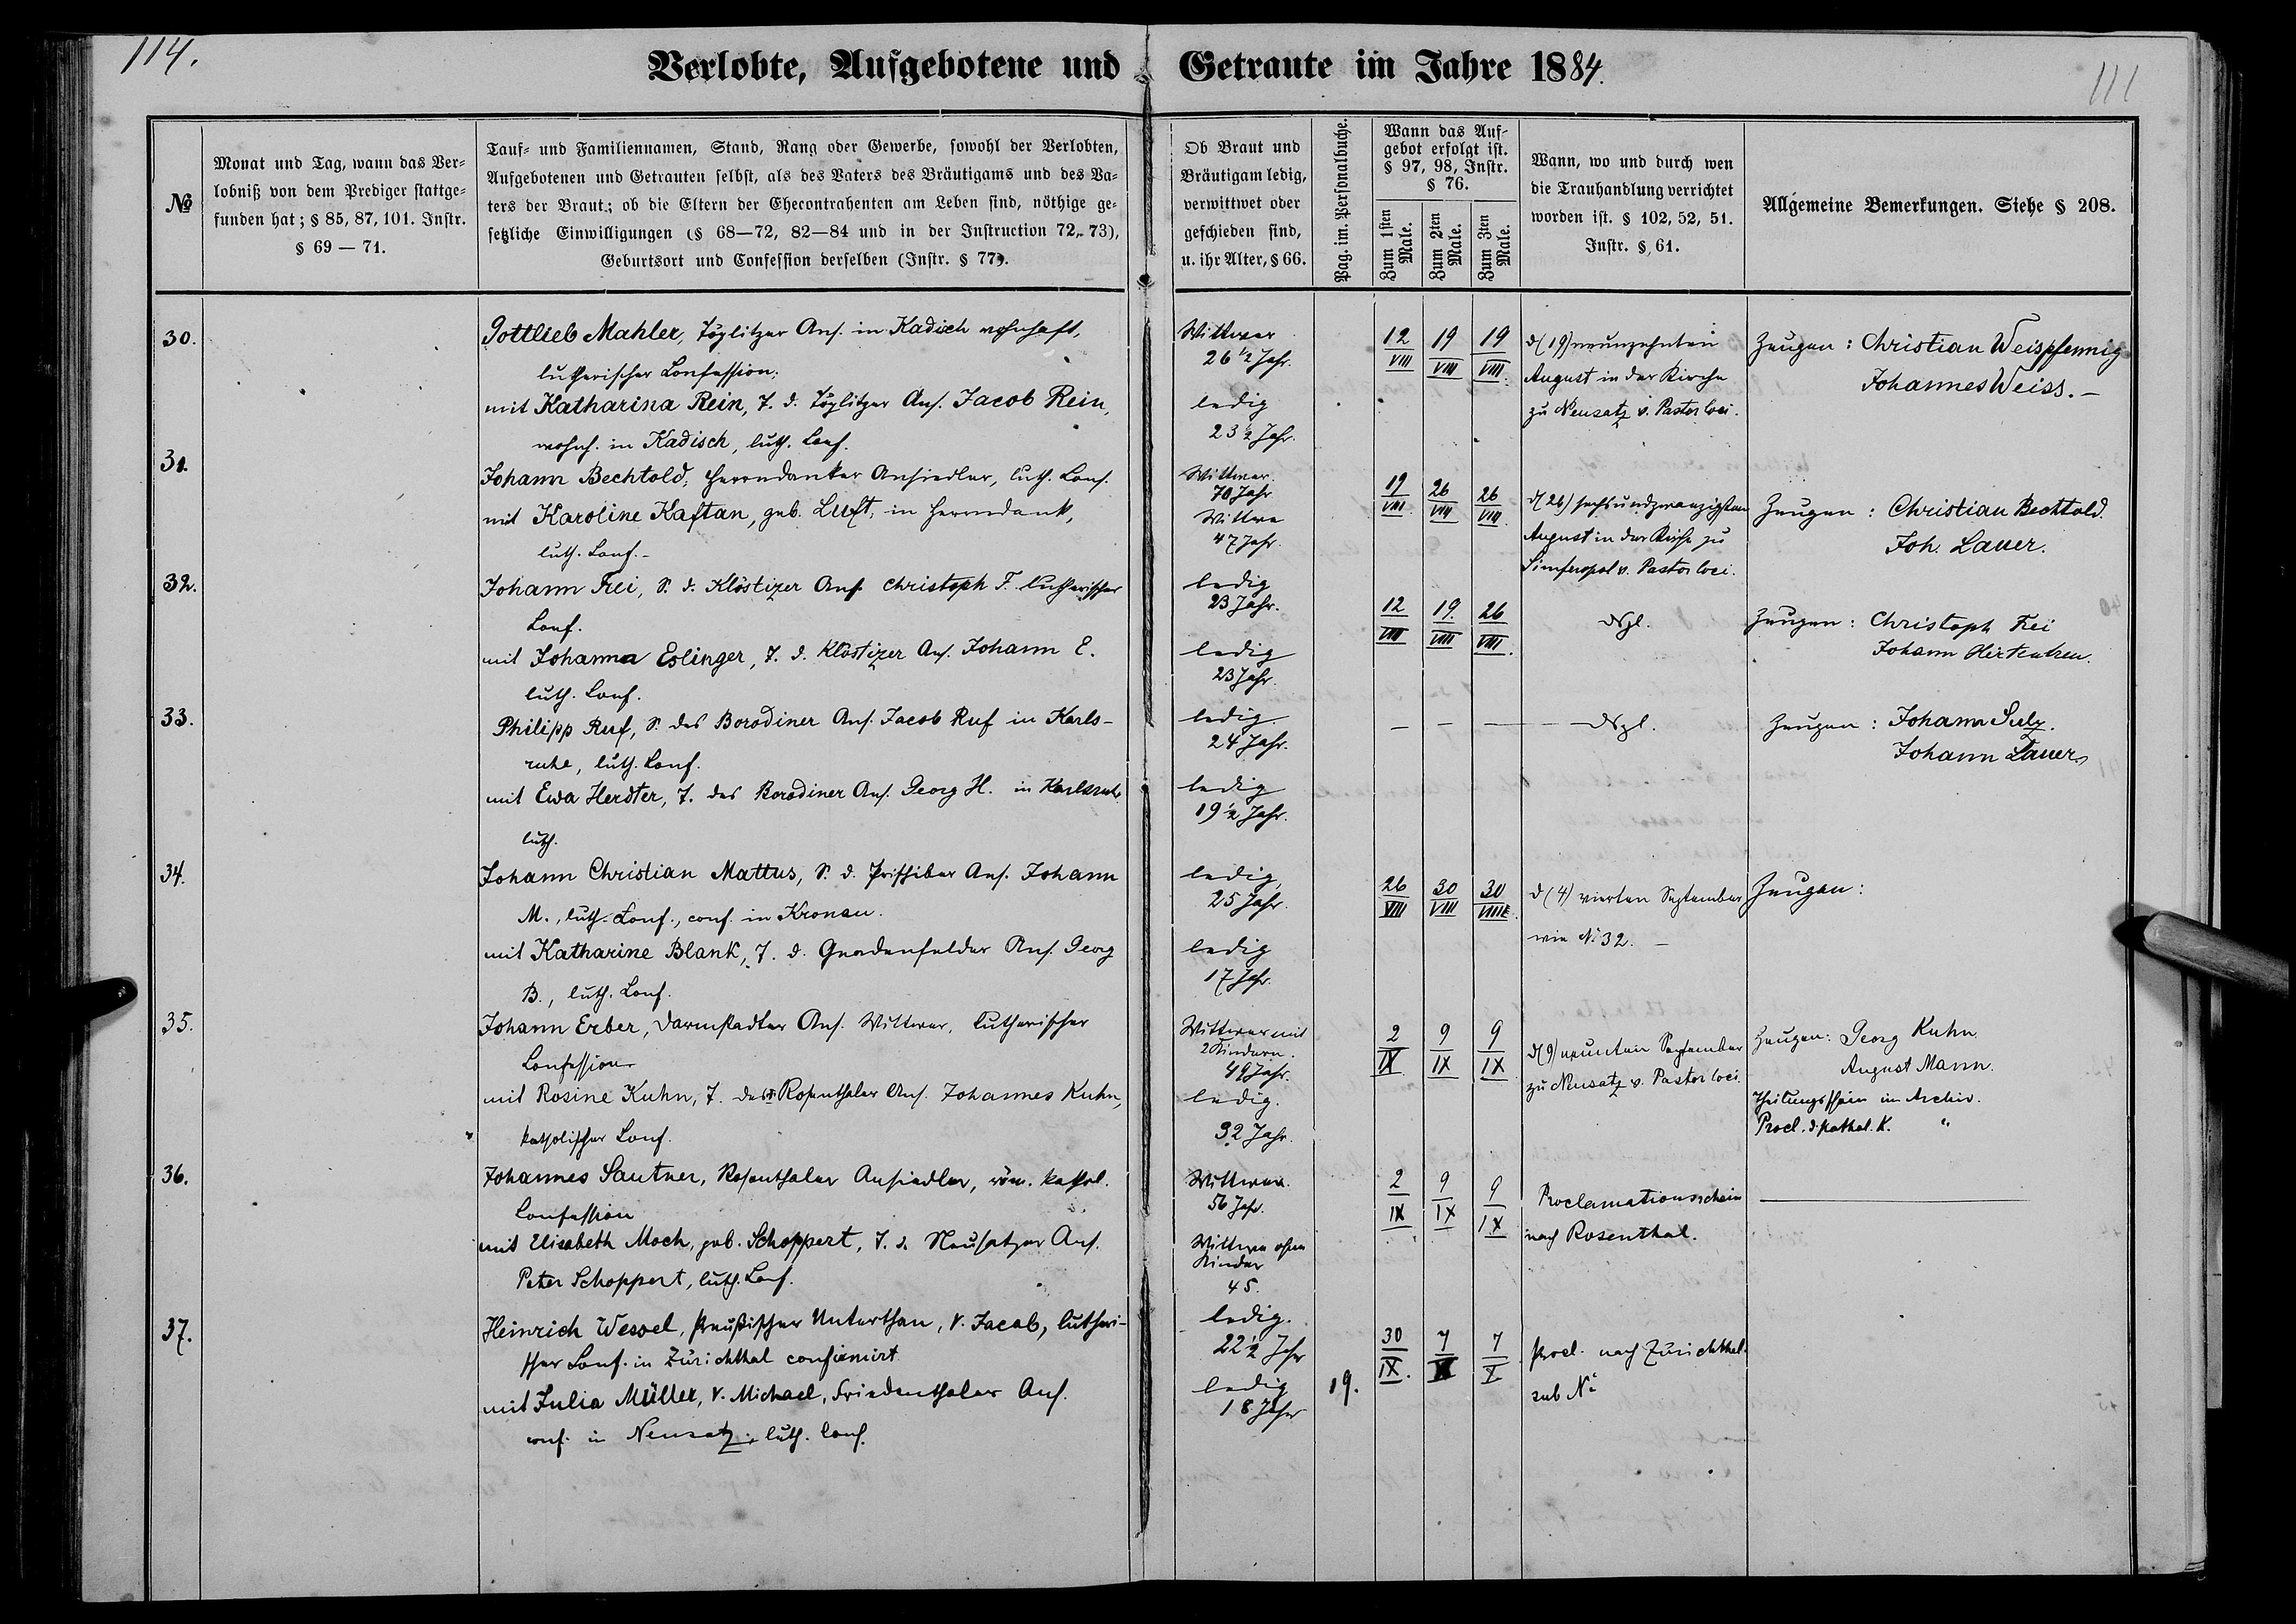 114.
111
Verlobte, Aufgebotene und Getraute im Jahre 1884.
№
Monat und Tag, wann das Ver=
lobniß von dem Prediger stattge=
funden hat; § 85, 87, 101. Instr.
§ 69 — 71.
Tauf= und Familiennamen, Stand, Rang oder Gewerbe, sowohl der Verlobten,
Aufgebotenen und Getrauten selbst, als des Vaters des Bräutigams und des Va=
ters der Braut; ob die Eltern der Ehecontrahenten am Leben sind, nöthige ge=
setzliche Einwilligungen (§ 68—72, 82—84 und in der Instruction 72, 73),
Geburtsort und Confession derselben (Instr. § 77).
Ob Braut und
Bräutigam ledig,
verwittwet oder
geschieden sind,
u. ihr Alter, § 66.
Pag. im. Personalbuche.
Wann das Auf=
gebot erfolgt ist.
§ 97, 98, Instr.
§ 76.
Zum 1sten
Male.
Zum 2ten
Male.
Zum 3ten
Male.
Wann, wo und durch wen
die Trauhandlung verrichtet
worden ist. § 102, 52, 51.
Instr. § 61.
Allgemeine Bemerkungen. Siehe § 208.
30.
Gottlieb Mahler, Töplitzer Ans. in Kadich wohnhaft,
lutherischer Confession;
mit Katharina Rein, T. d. Töplitzer Ans. Jacob Rein,
wohnh. in Kadisch, luth. Conf.
Wittwer
26 1/2 Jahr.
ledig
23 1/2 Jahr.
12/VIII 19/VIII 19/VIII.
d (19) neunzehnten
August in der Kirche
zu Neusatz v. Pastor loci.
Zeugen: Christian Weispfennig
Johannes Weiss. –
31.
Johann Bechtold, Herrndanker Ansiedler, luth. Conf.
mit Karoline Kaftan, geb. Luft, in Herrndank,
luth. Conf. –
Wittwer.
70 Jahr
Wittwe
47 Jahr.
19/VIII. 26/VIII 26/VIII.
d (26) sechsundzwanzigsten
August in der Kirche zu
Simferopol v. Pastor loci.
Zeugen: Christian Bechtold.
Joh. Lauer.
32.
Johann Frei, S. d. Klöstizer Ans. Christoph F. lutherischer
Conf.
mit Johanna Eslinger, T. d. Klöstizer Ans. Johann E.
luth. Conf.
ledig
23 Jahr.
ledig
23 Jahr.
12/VIII 19./VIII 26/VIII.
dsgl.
Zeugen: Christoph Frei
Johann
33.
Philipp Ruf, S. des Borodiner Ans. Jacob Ruf in Karls-
ruhe, luth. Conf.
mit Ewa Herdter, T. des Borodiner Ans. Georg H. in Karlsruh.
luth.
ledig.
24 Jahr.
ledig
19 1/2 Jahr.
— — —
dsgl.
Zeugen: Johann Sulz.
Johann Lauer.
34.
Johann Christian Mattus, S. d. Prischiber Ans. Johann
M., luth. Conf., conf. in Kronau.
mit Katharine Blank, T. d. Gnadenfelder Ans. Georg
B., luth. Conf.
ledig,
25 Jahr.
ledig
17 Jahr.
26/VIII 30/VIII 30/VIII.
d (4) vierten September
wie № 32. –
Zeugen:
35.
Johann Erber, Darmstadter Ans. Wittwer, lutherischer
Confession
mit Rosine Kuhn, T. des Rosenthaler Ans. Johannes Kuhn,
katholischer Conf.
Wittwer mit
2 Kindern.
49 Jahr.
ledig.
32 Jahr.
2/IX 9/IX 9/IX
d (9) neunten September
zu Neusatz v. Pastor loci.
Zeugen: Georg Kuhn.
August Mann.
Theilungsschein im Archiv.
Procl. d. kathol. K. "
36.
Johannes Sautner, Rosenthaler Ansiedler, röm. kathol.
Confession
mit Elisabeth Moch, geb. Schoppert, T. d. Neusatzer Ans.
Peter Schoppert, luth. Conf.
Wittwer.
56 Jahr.
Wittwe ohne
Kinder
45.
2/IX 9/IX 9/IX
Proclamationsschein
nach Rosenthal.
37.
Heinrich Wessel, preußischer Unterthan, V. Jacob, lutheri-
scher Conf. in Zürichthal confirmirt.
mit Julia Müller, V. Michael, Friedenthaler Ans.
conf. in Neusatz; luth. Conf.
ledig.
22 1/2 Jahr
ledig
18 Jahr
19.
30/IX. 7/X 7/X
Procl. nach Zürichthal.
sub №